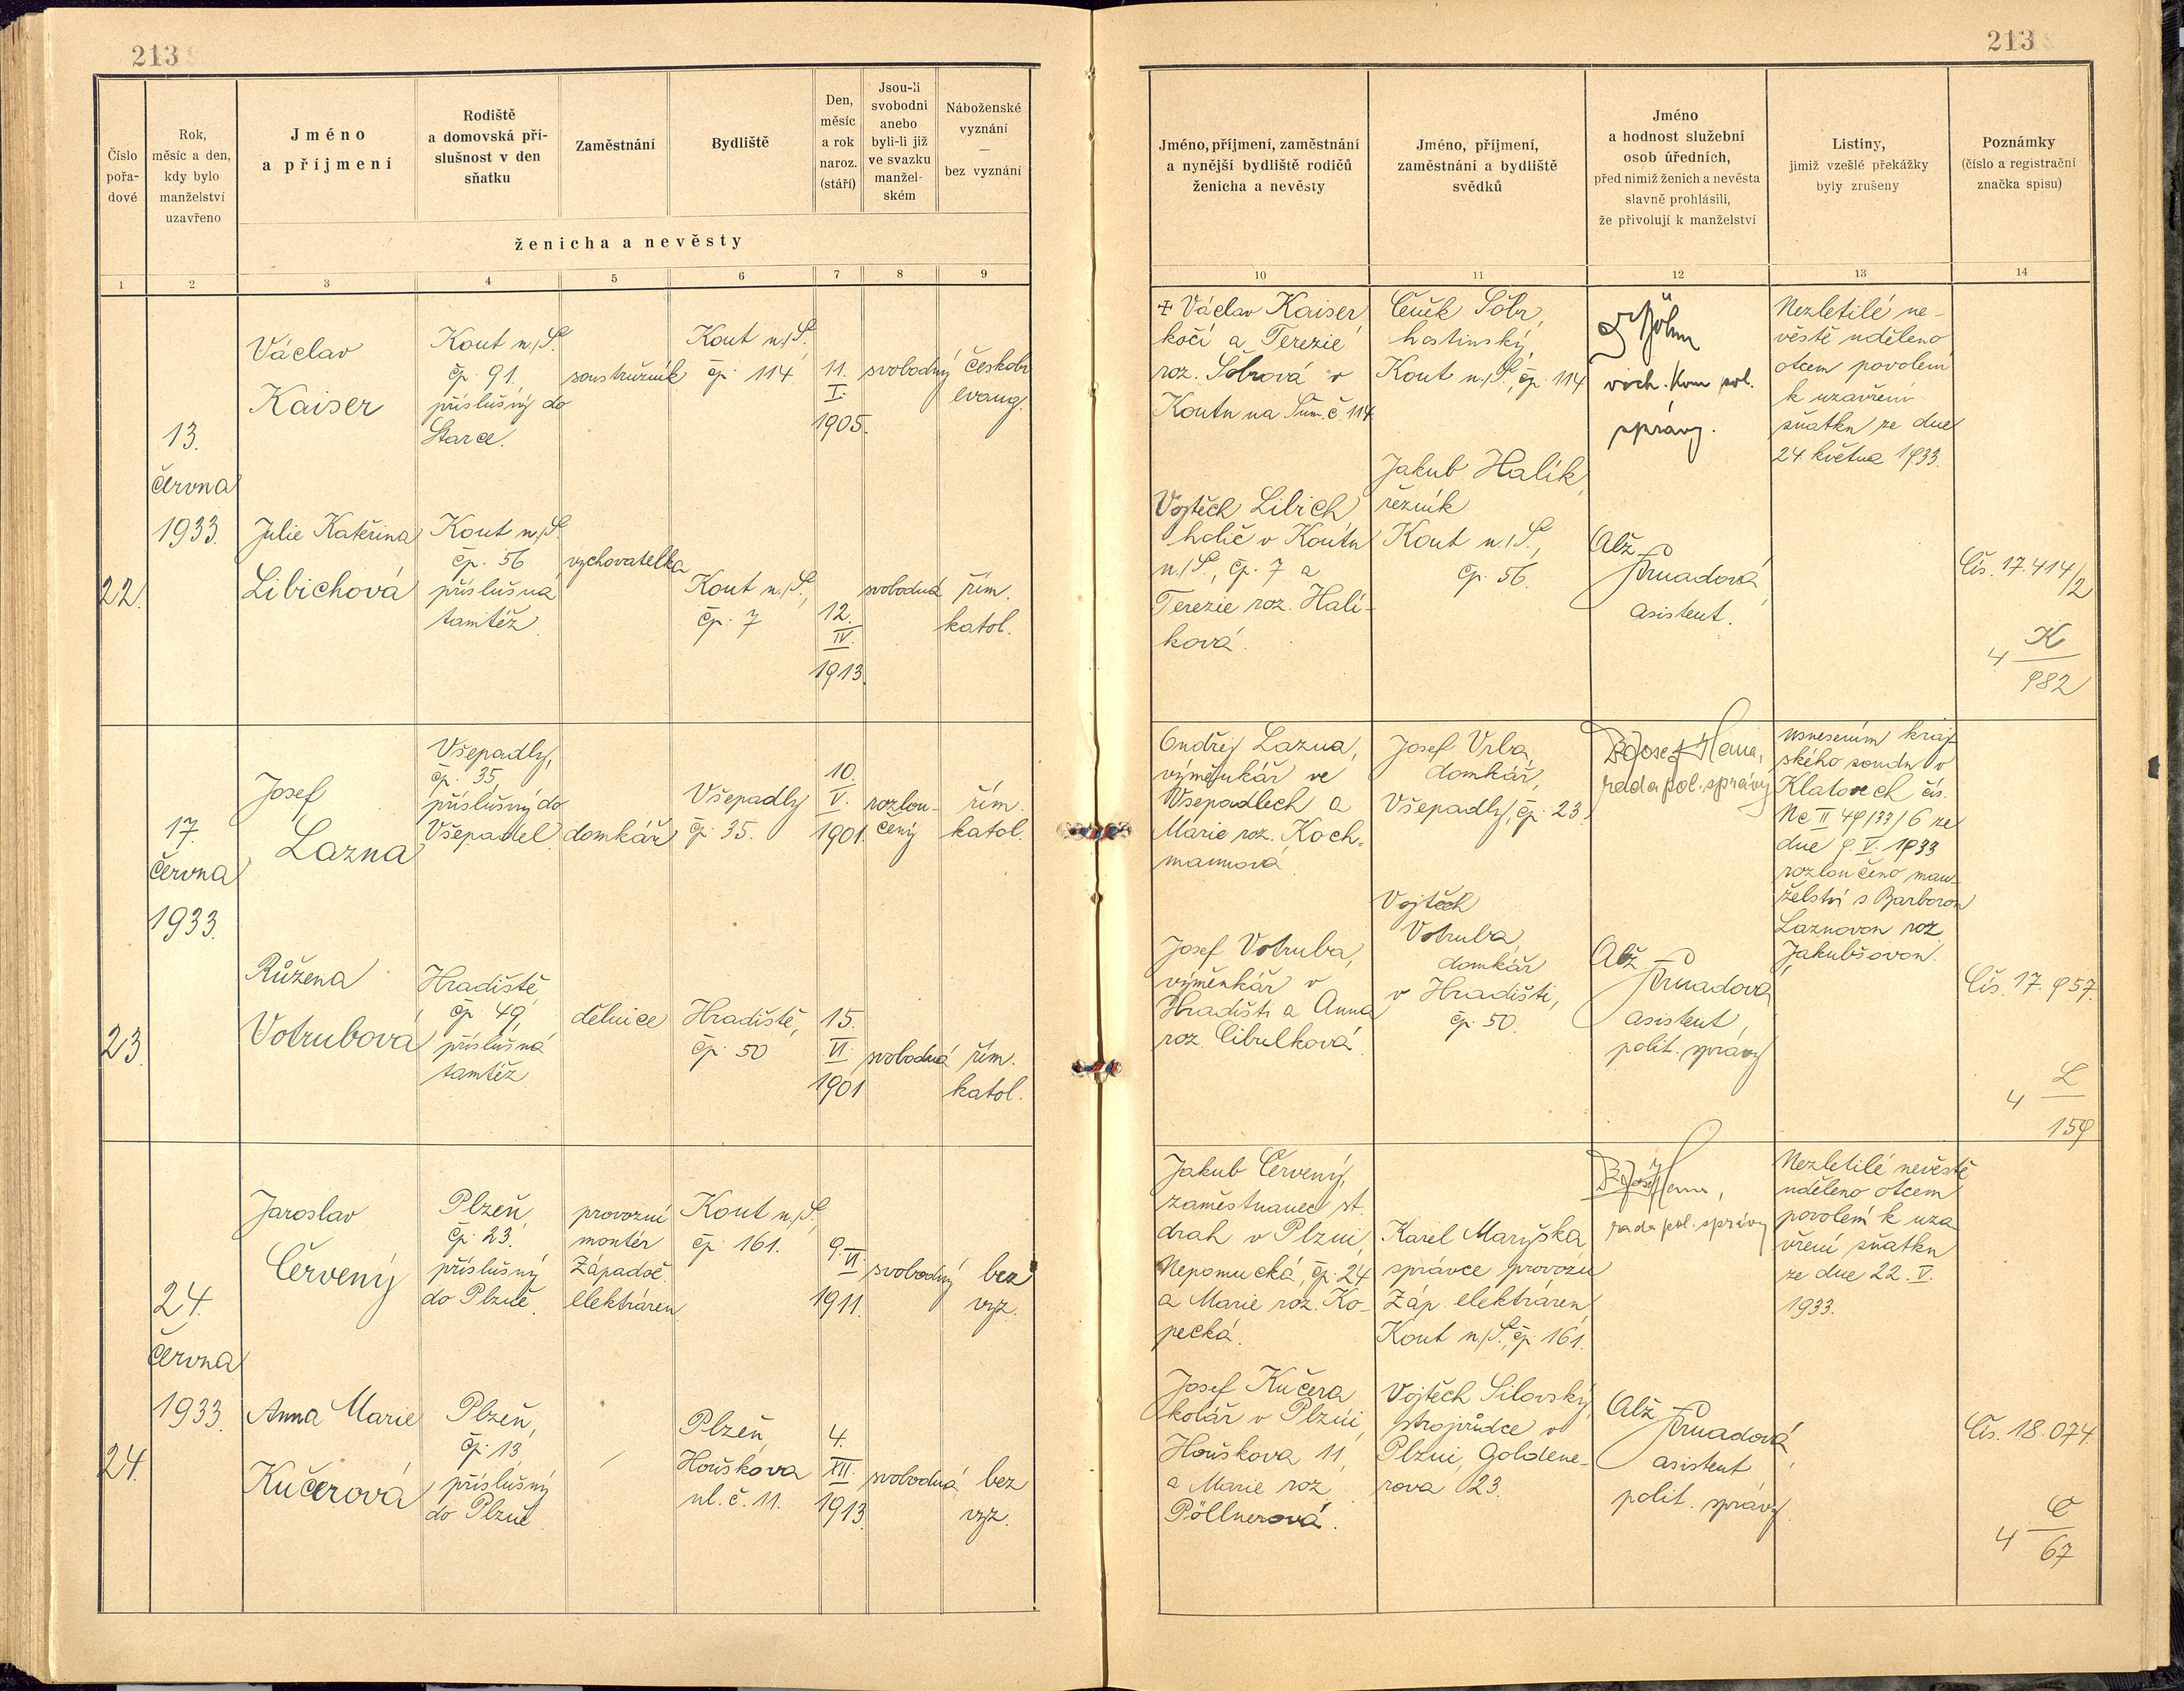 213
213
Číslo
pořa-
dové
Rok,
měsíc a den,
kdy bylo
manželství
uzavřeno
Jméno
a příjmení
Rodiště
a domovská pří-
slušnost v den
sňatku
Zaměstnání
Bydliště
Den,
měsíc
a rok
naroz.
(stáří)
Jsou-li
svobodni
anebo
byli-li již
ve svazku
manžel-
ském
Náboženské
vyznání
—
bez vyznání
ženicha a nevěsty
Jméno, příjmení, zaměstnání
a nynější bydliště rodičů
ženicha a nevěsty
Jméno, příjmení,
zaměstnání a bydliště
svědků
Jméno
a hodnost služební
osob úředních,
před nimiž ženich a nevěsta
slavně prohlásili,
že přivolují k manželství
Listiny,
jimiž vzešlé překážky
byly zrušeny
Poznámky
(číslo a registrační
značka spisu)
1 2 3 4 5 6 7 8 9
10 11 12 13 14
22.
13.
června
1933.
Václav
Kaiser
Kout n./Š.
čp. 91,
příslušný do
Starce.
soustružník
Kout n./Š.
čp. 114
11.
I.
1905.
svobodný
českobr
evang.
Julie Kateřina
Libichová
Kout n./Š.
čp. 56
příslušná
tamtéž.
vychovatelka
Kout n./Š.,
čp. 7
12.
IV.
1913.
svobodná
řím.
katol.
+ Václav Kaiser
kočí a Terezie
roz. Šobrová v
Koutu na Šum. č 114
Vojtěch Libich
holič v Koutu
n./Š., čp. 7 a
Terezie roz. Halí-
ková.
Čeněk Šobr,
hostinský,
Kout n./Š., čp. 114
Jakub Halík,
řezník
Kout n./Š.,
čp. 56.
vrch. kom pol.
správy.
Alž.
asistent.
Nezletilé ne-
věstě uděleno
otcem povolení
k uzavření
sňatku ze dne
24. května 1933.
Čís. 17.414/2
K
4
982
23.
17.
června
1933.
Josef
Lazna
Všepadly,
čp. 35,
příslušný do
Všepadel.
domkář
Všepadly
čp. 35.
10.
V.
1901.
rozlou-
čený
řím.
katol.
Růžena
Votrubová
Hradiště
čp. 49,
příslušná
tamtéž.
dělnice
Hradiště,
čp. 50
15.
VI.
1901
svobodná
řím.
katol.
Ondřej Lazna,
výměnkář ve
Všepadlech a
Marie roz. Koch-
mannová.
Josef Votruba,
výměnkář v
Hradišti a Anna
roz. Cibulková.
Josef Vrba,
domkář,
Všepadly, čp. 23.
Vojtěch
Votruba,
domkář
v Hradišti,
čp. 50.
rada pol. správy
Alž.
asistent,
polit. správy
usnesením kraj-
ského soudu v
Klatovech čís.
Nc II 49/33/6 ze
dne 9. V. 1933
rozloučeno man-
želství s Barborou
Laznovou roz.
Jakubšovou.
Čís. 17.957.
L
4
159
24.
24.
června
1933.
Jaroslav
Červený
Plzeň,
čp. 23,
příslušný
do Plzně.
provozní
montér
Západoč.
elektráren
Kout n./Š.,
čp. 161.
9. VI.
1911.
svobodný
bez
vyz.
Anna Marie
Kučerová
Plzeň,
čp. 13,
příslušný
do Plzně.
Plzeň,
Houškova
ul. č. 11.
4.
XII.
1913.
svobodná
bez
vyz.
Jakub Červený,
zaměstnanec st.
drah v Plzni
Nepomucká, čp. 24
a Marie roz. Ko-
pecká.
Josef Kučera
kolář v Plzni,
Houškova 11,
a Marie roz.
Pöllnerová.
Karel Maryška
správce provozu
Záp. elektráren,
Kout n./Š., čp. 161.
Vojtěch Silovský,
strojvůdce v
Plzni, Goldene-
rova 23.
rada pol. správy
Alž.
asistent
polit. správy
Nezletilé nevěstě
uděleno otcem
povolení k uza
vření sňatku
ze dne 22. V.
1933.
Čís. 18.074.
C
4
67